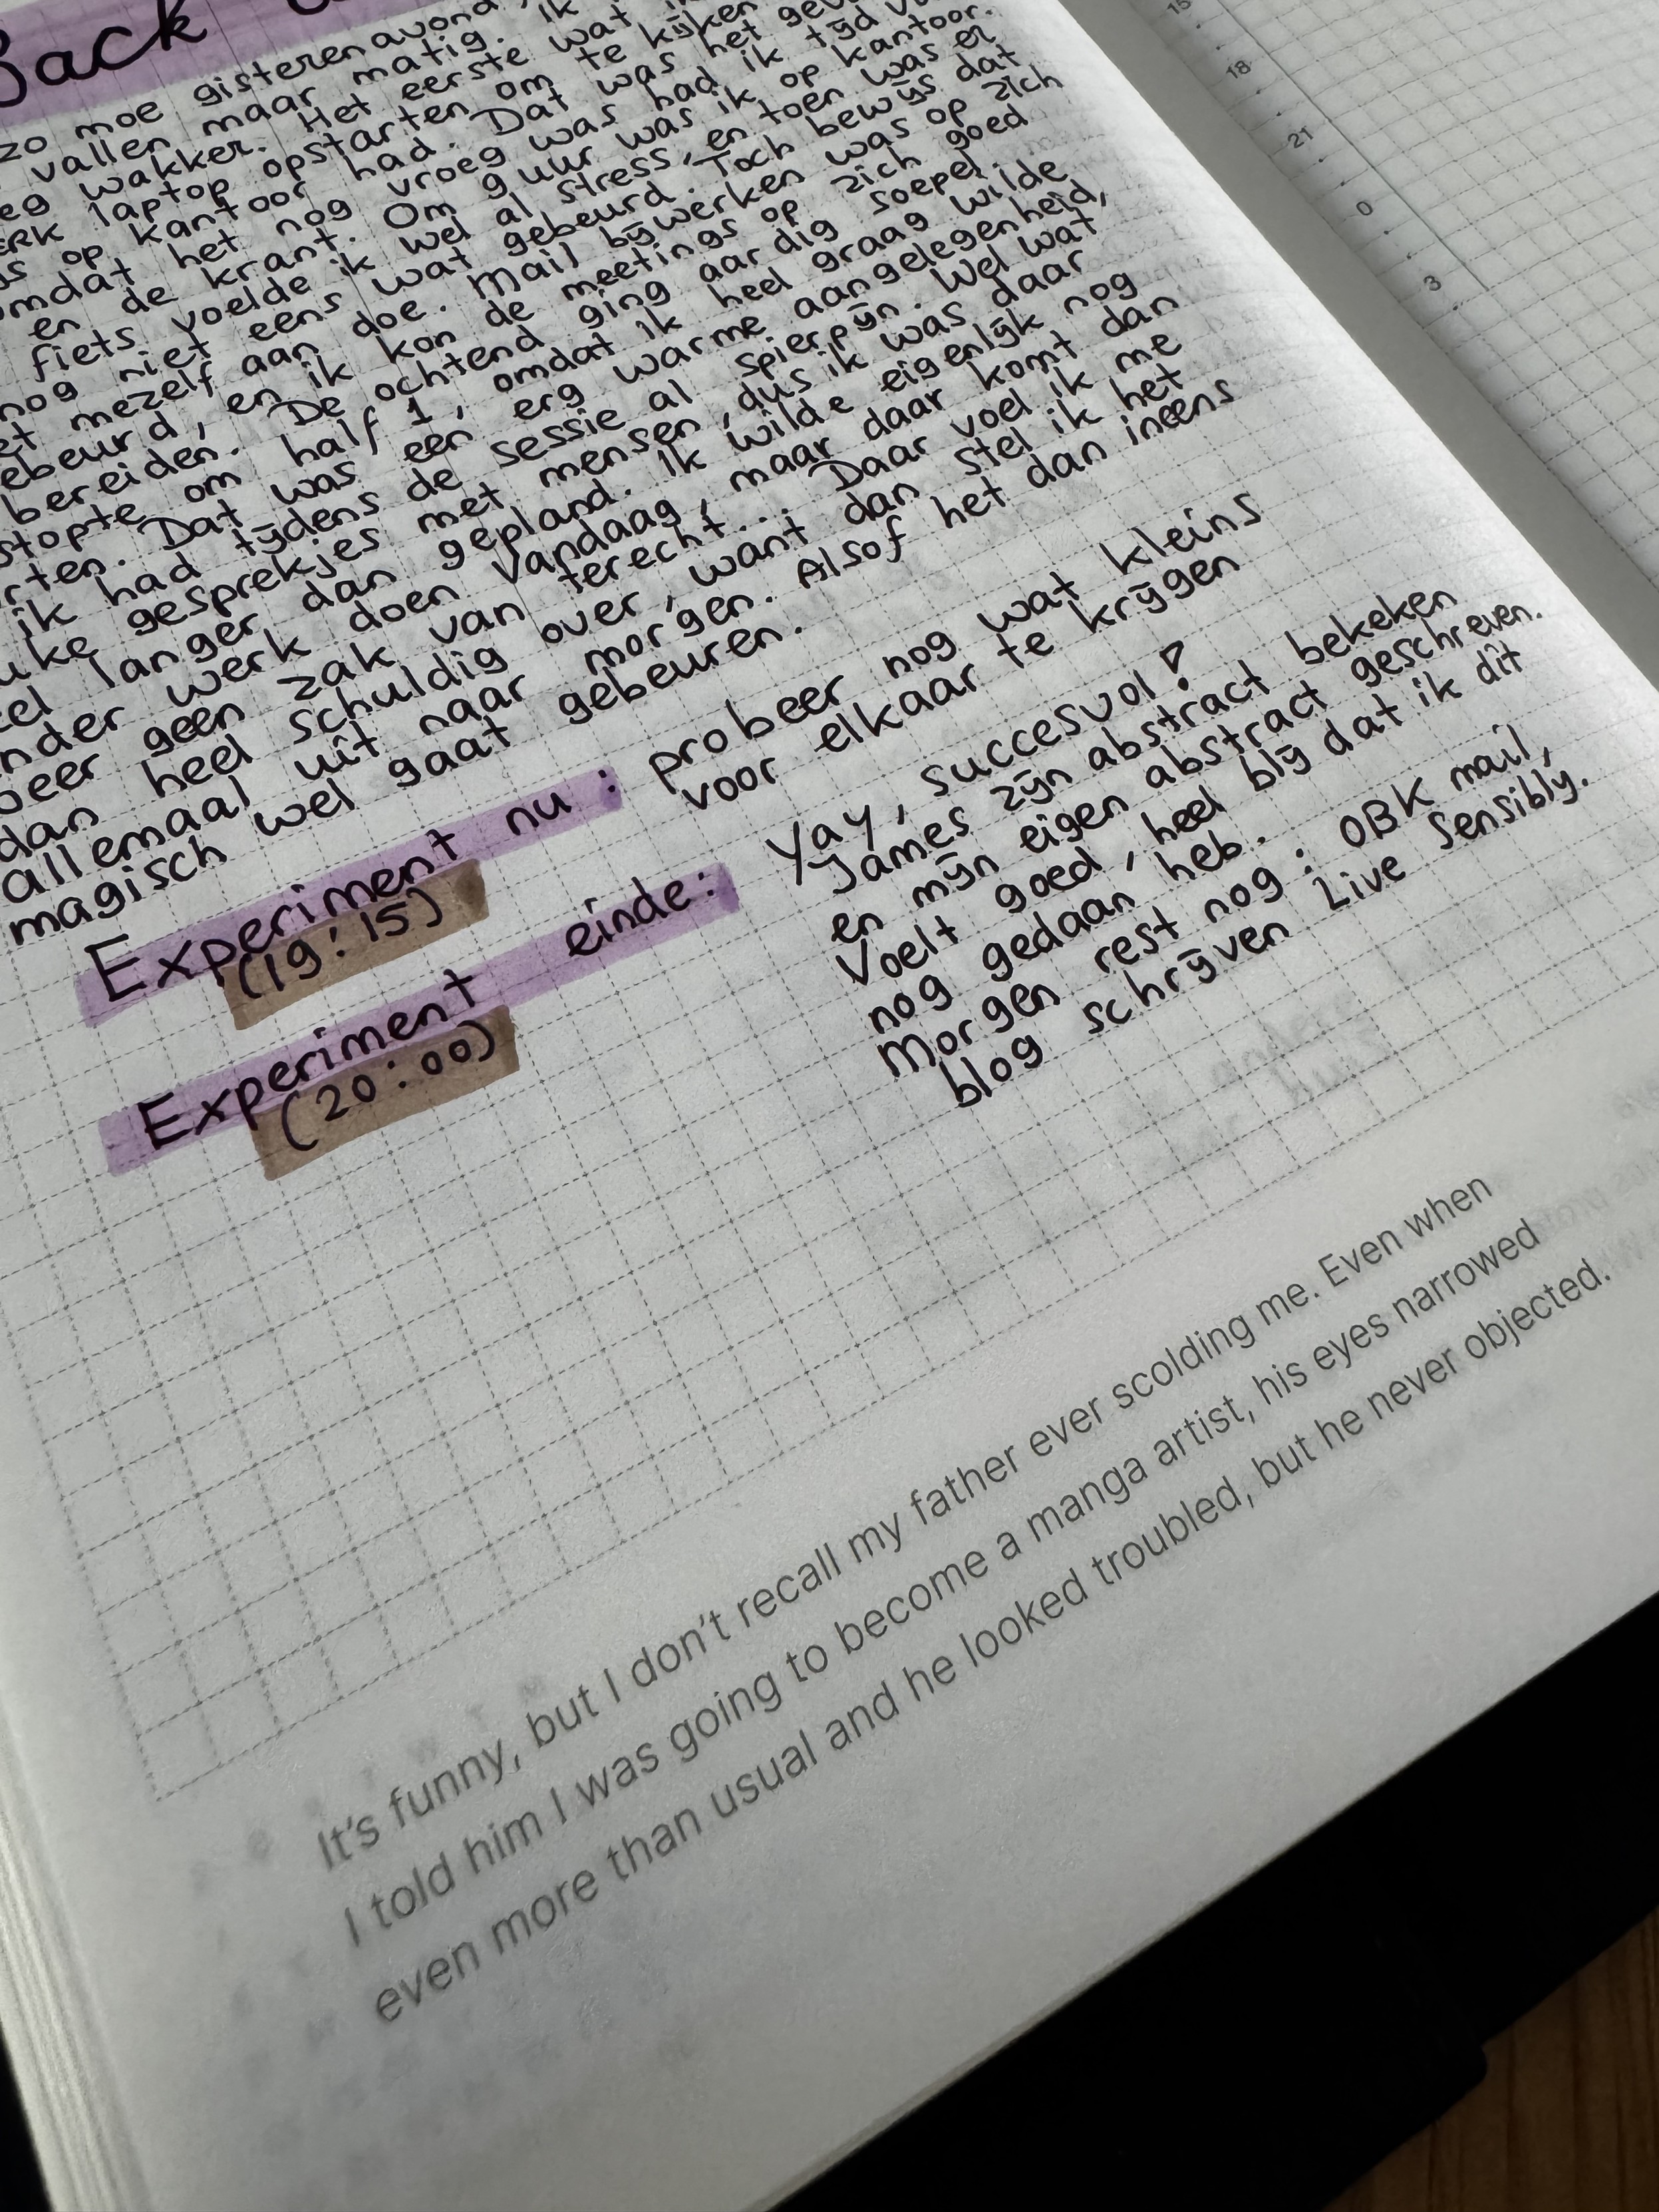 Back
zo moe gisterenavond,
vallen maar matig. Ik
wakker. Het eerste wat
laptop opstarten om te kijken
op kantoor had. Dat was het
omdat het nog vroeg was had ik tijd
en de krant. Om 9 uur was ik op kantoor.
fiets voelde ik wel al stress, en toen was er
nog niet eens wat gebeurd. Toch bewijs dat
mezelf aan doe. Mail bijwerken was op zich
gebeurd, en ik kon de meetings op zich goed
bereiden. De ochtend ging aardig soepel.
stopte om half 1, omdat ik heel graag wilde
Dat was een erg warme aangelegenheid,
ik had tijdens de sessie al spierpijn. Wel wat
gesprekjes met mensen, dus ik was daar
langer dan gepland. Ik wilde eigenlijk nog
werk doen vandaag, maar daar komt dan
geen zak van terecht... Daar voel ik me
dan heel schuldig over, want dan stel ik het
allemaal uit naar morgen. Alsof het dan ineens
magisch wel gaat gebeuren.
Experiment nu: probeer nog wat kleins
(19:15) voor elkaar te krijgen
Experiment einde: Yay, succesvol!
(20:00) James zijn abstract bekeken
en mijn eigen abstract geschreven.
Voelt goed, heel blij dat ik dit
nog gedaan heb.
Morgen rest nog: OBK mail,
blog schrijven Live Sensibly.
It's funny, but I don't recall my father ever scolding me. Even when
I told him I was going to become a manga artist, his eyes narrowed
even more than usual and he looked troubled, but he never objected.
15
18
21
0
3